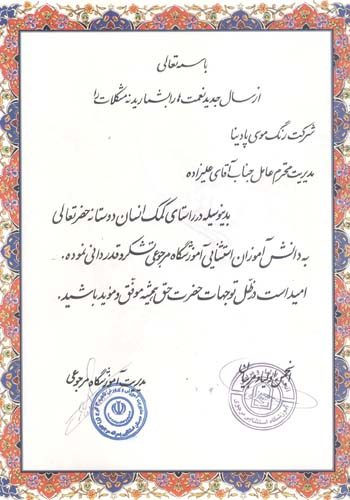 باسمه تعالی
از سال جدید نعمت ها را بشمارید نه مشکلات را
شرکت رنگ موی پادینا
مدیریت محترم عامل جناب آقای علیزاده
بدینوسیله در راستای کمک انسان دوستانه حضرتعالی
به دانش آموزان استثنایی آموزشگاه مرجوعی تشکر و قدردانی نموده.
امید است در ظل توجهات حضرت حق همیشه موفق و مؤید باشید.
انجمن اولیاء و مربیان
مدیریت آموزشگاه مرجوعی